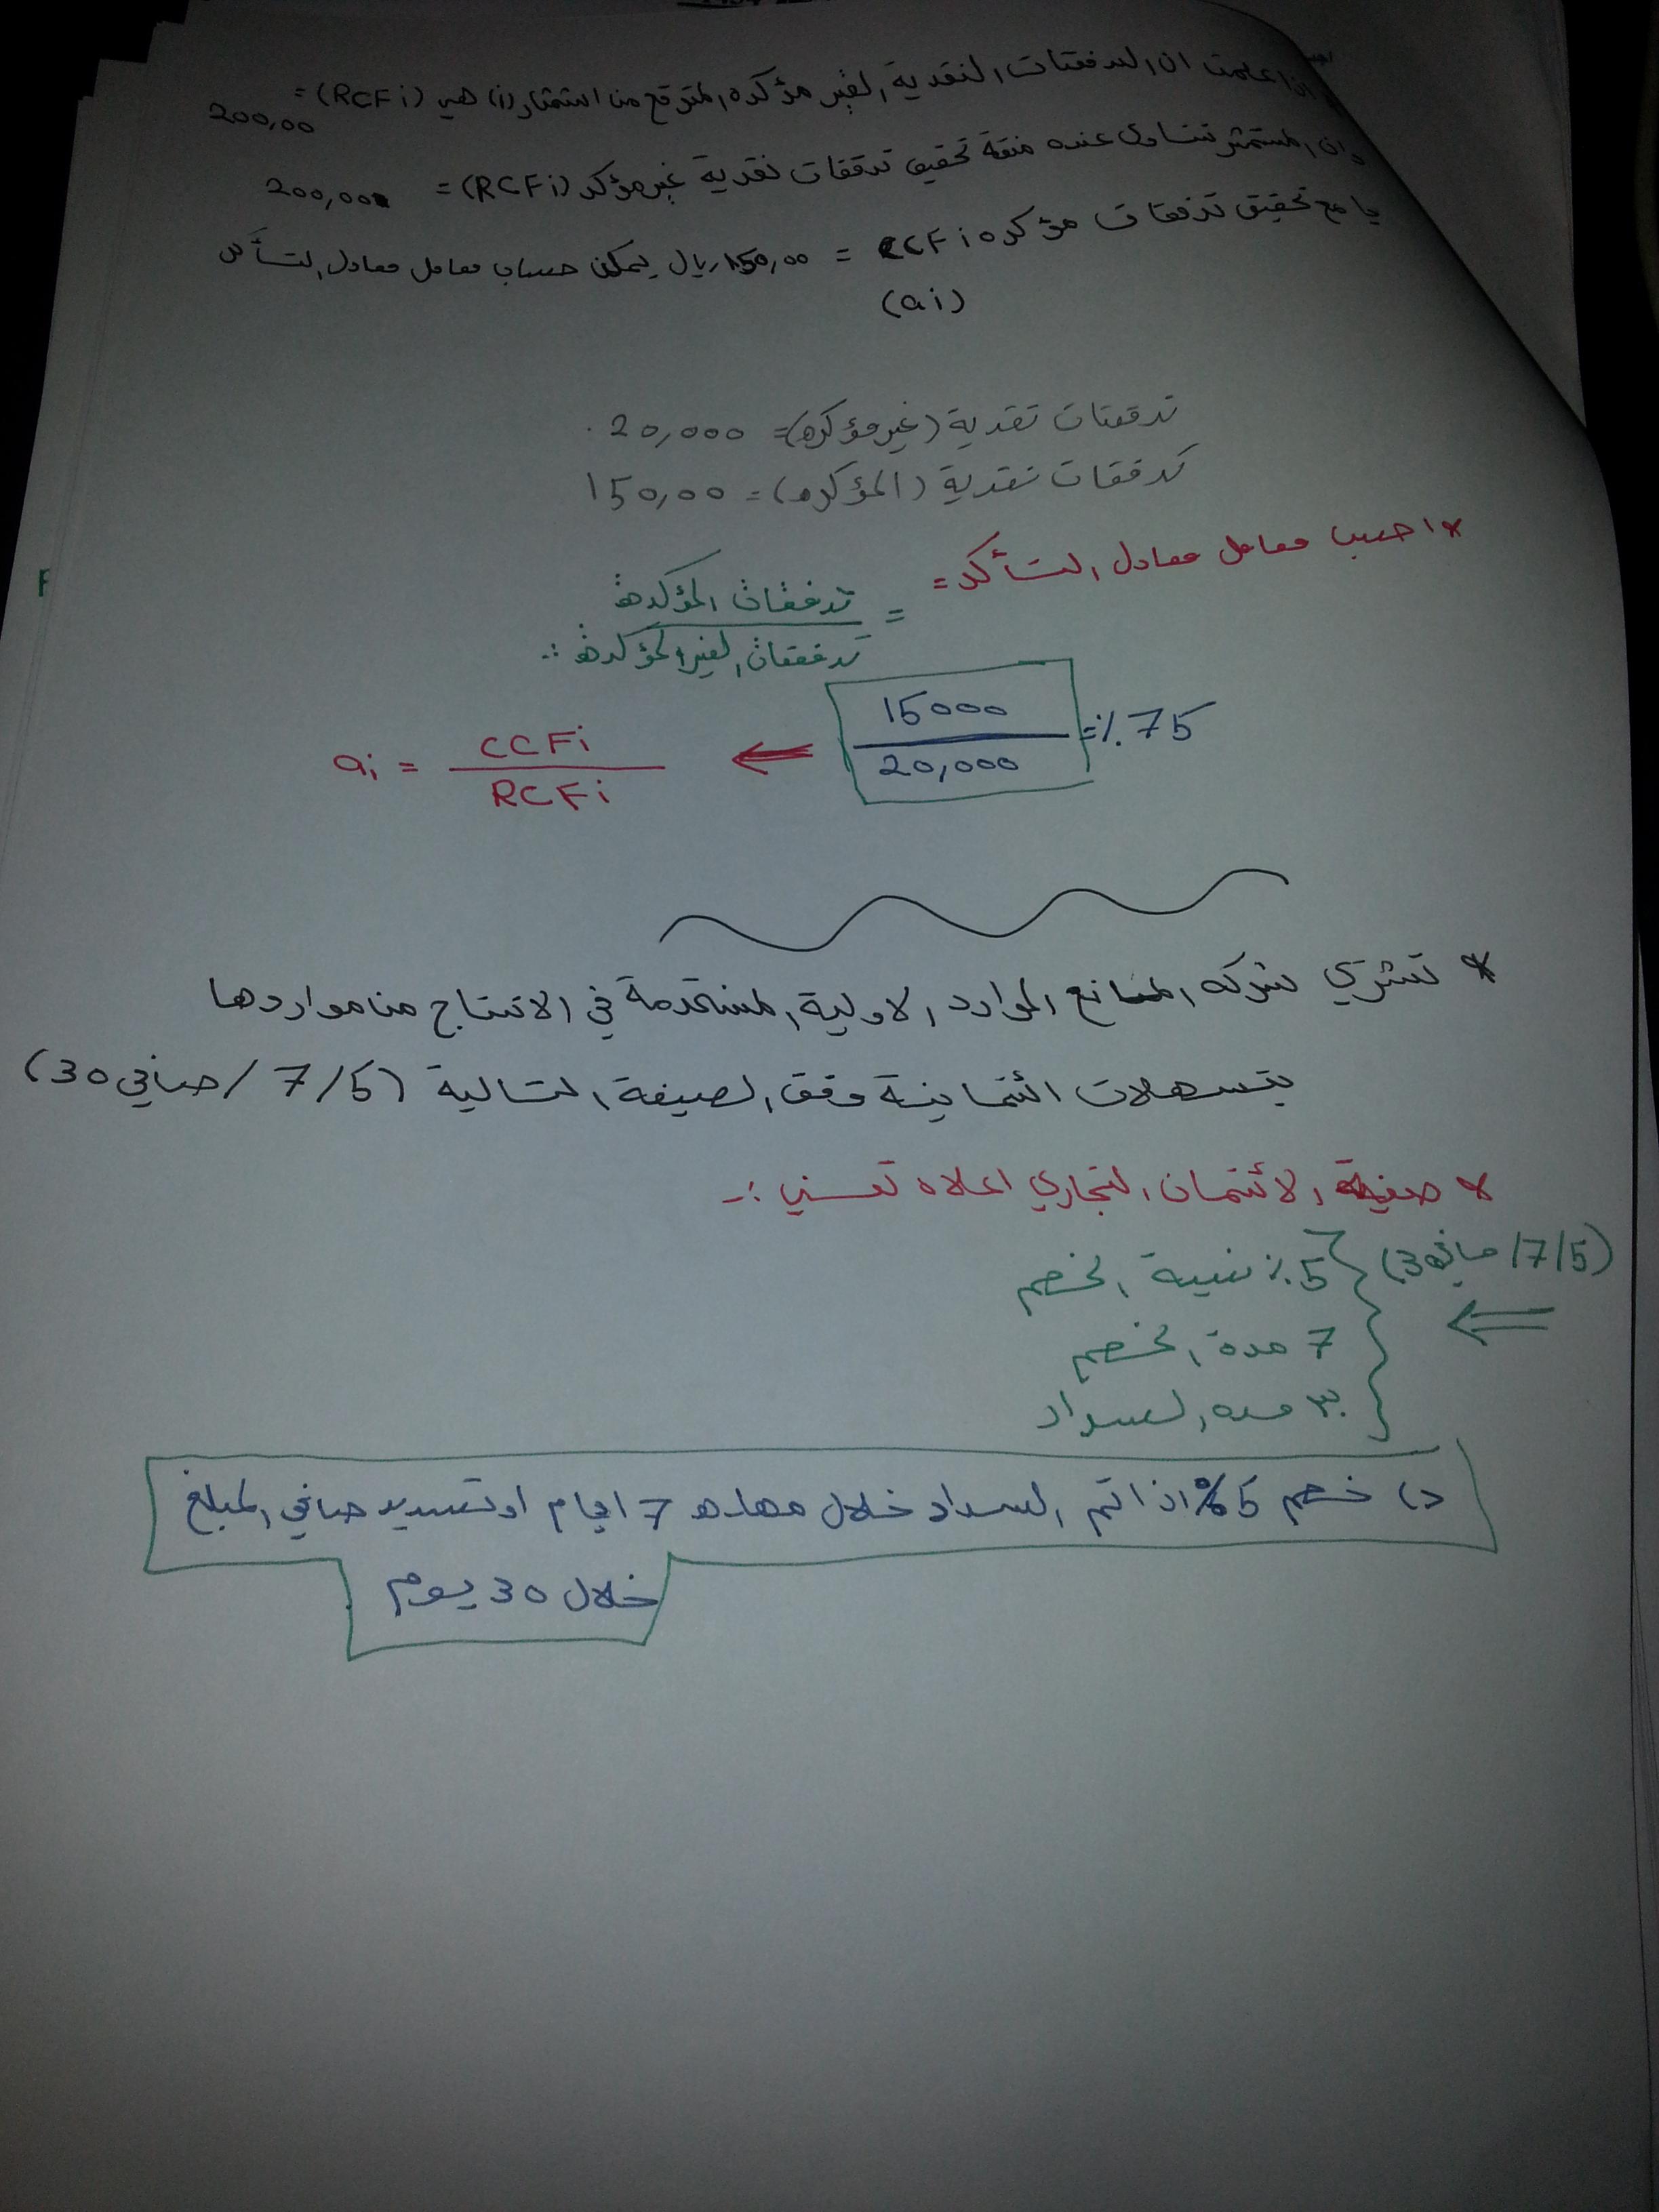 اذا علمت ان التدفقات النقدية الغير مؤكده المتوقع من استثمار (i) هي (RCFi) = 200,00
وان المستثمر تتساوى عنده منفعة تحقيق تدفقات نقدية غير مؤكد (RCFi) = 200,00
مع تحقيق تدفقات مؤكده CCFi = 150,00 ريال يمكن حساب معامل معادل التأكد
(ai)
تدفقات نقدية (غير مؤكده) = 20,000
تدفقات نقدية (المؤكده) = 150,00
* احسب معامل معادل التأكد =
= تدفقات المؤكدة
تدفقات الغير المؤكدة :.
15000
20,000
= %75
ai = CCFi
RCFi
* تشتري شركه المصانع الموارد الاولية المستخدمة في الانتاج من مواردها
بتسهلات ائتمانية وفق الصيغة التالية (7/5 / صافي 30)
* صيغة الائتمان التجاري اعلاه تعني :-
(7/5/ صافي 30)
5% نسبة الخصم
7 مدة الخصم
٣٠ مده السداد
د) خصم 5% اذا تم السداد خلال مهله 7 ايام او تسديد صافي المبلغ
خلال 30 يوم
F